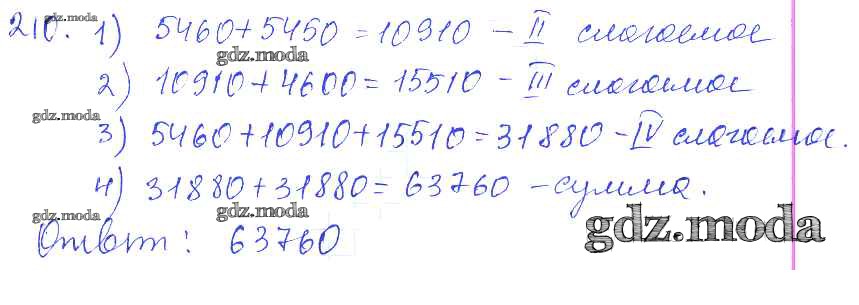 210. 1) 5460+5450=10910 - II слагаемое
2) 10910+4600=15510 - III слагаемое
3) 5460+10910+15510=31880 - IV слагаемое.
4) 31880+31880=63760 - сумма.
Ответ: 63760
gdz.moda
gdz.moda
gdz.moda
gdz.moda
gdz.moda
gdz.moda
gdz.moda
gdz.moda
gdz.moda